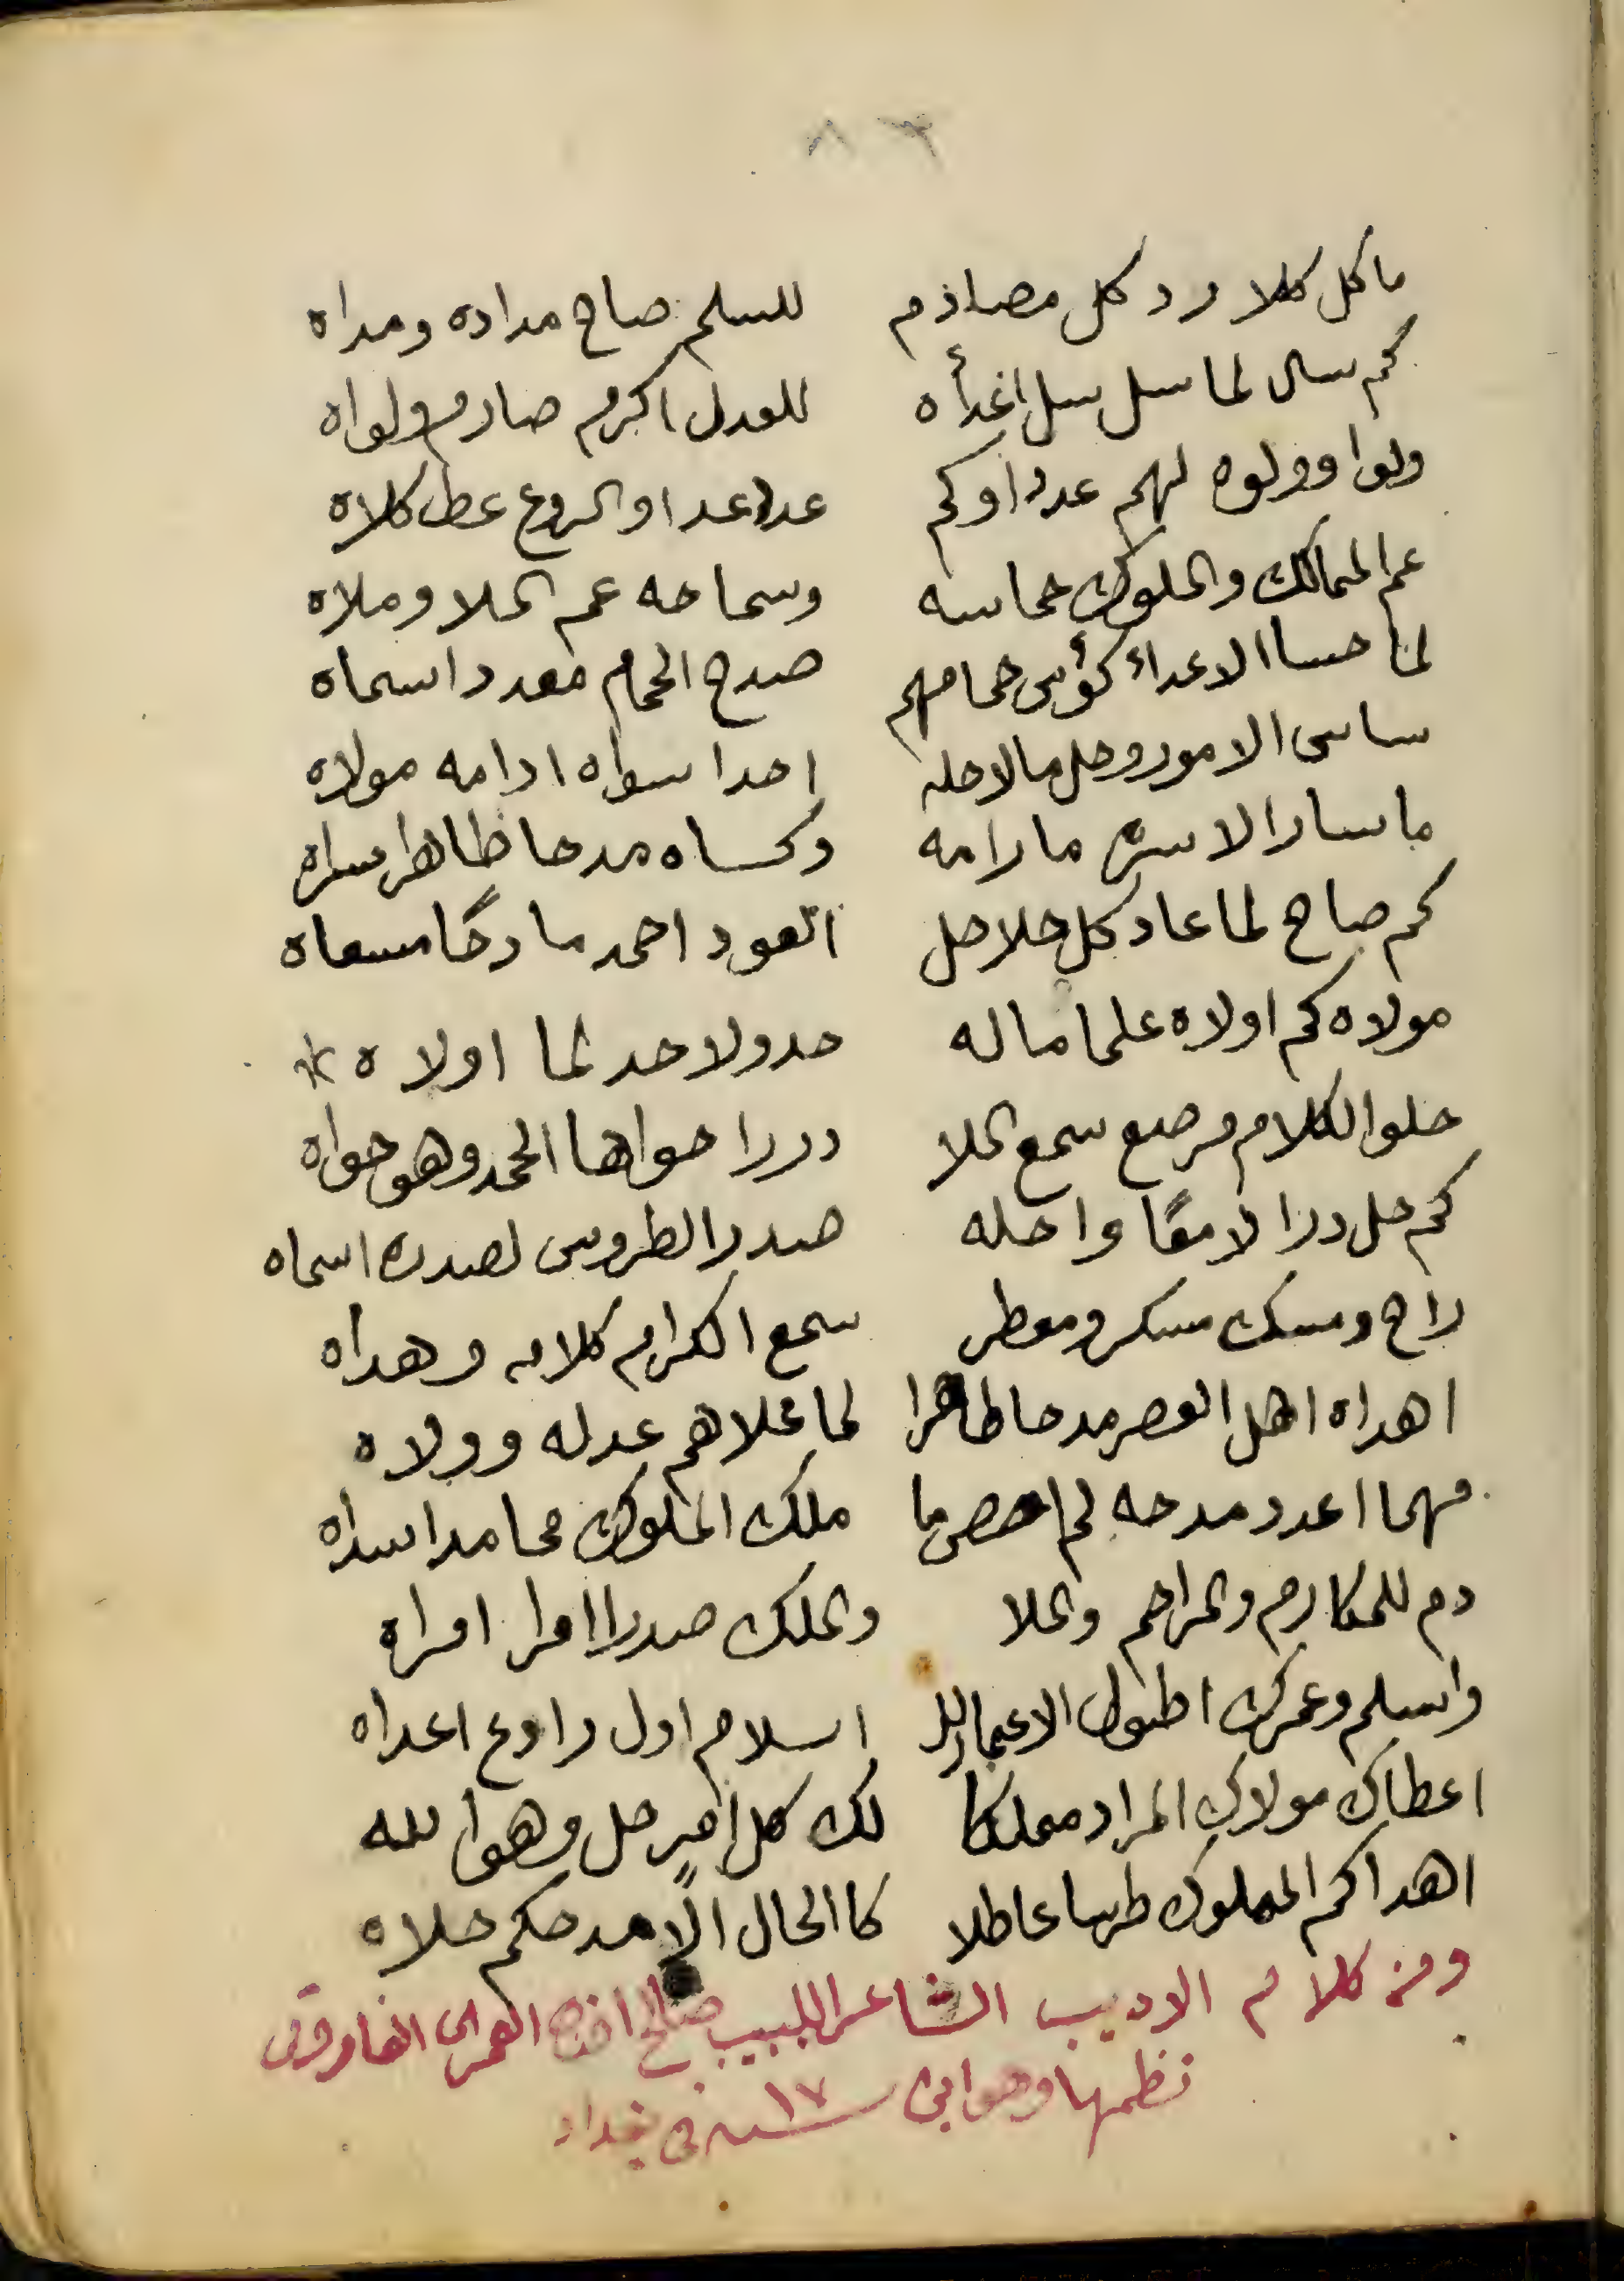 ما كل كلا ورد كل مصادم للسلم صاح مداده ومداه
كم سال لما سل سل اعداه للعدل اكرم صارم ولواه
ولوا وولوه لهم عددا وكم عددا عدا والروع عطل كلاه
عم الممالك والملوك حماسه وسماحه عم الملا وملاه
لما حسا الاعداء كؤس حمامهم صدح الحمام معددا سماه
ساس الامور وحل ما لا حله احدا سواه ادامه مولاه
ما سار الا سره ما رامه وكساه مدحا طاهرا سراه
كم صاح لما عاد كل حلاحل العود احمد مادحًا مسعاه
مولاه كم اولاه علما ماله حد ولا حد لما اولاه
حلو الكلام مرصع سمع الملا دررا حواها الحمد وهو حواه
كم حل درا لامعًا واحله صدر الطروس لصدره اسماه
راح ومسك مسكر ومعطر سمع الكرام كلامه وهداه
اهداه اهل العصر مدحا طاهرا لما علاهم عدله وولاه
مهما اعدد مدحه لم احص ما ملك الملوك محامدا سداه
دم للمكارم والمراحم والملا والملك صدرا امرا امراه
واسلم وعمرك اطول الاعمار لل اسلام اول راوع اعداه
اعطاك مولاك المراد مملكا لك كل امرٍ حل وهو الله
اهداكم المملوك طرسا عاطلا كالحال الا مدحكم حلاه
ومن كلام الاديب الشاعر اللبيب صالح افندي العمري الفاروقي
نظمها وهو ابن ١٧ سنه في بغداد